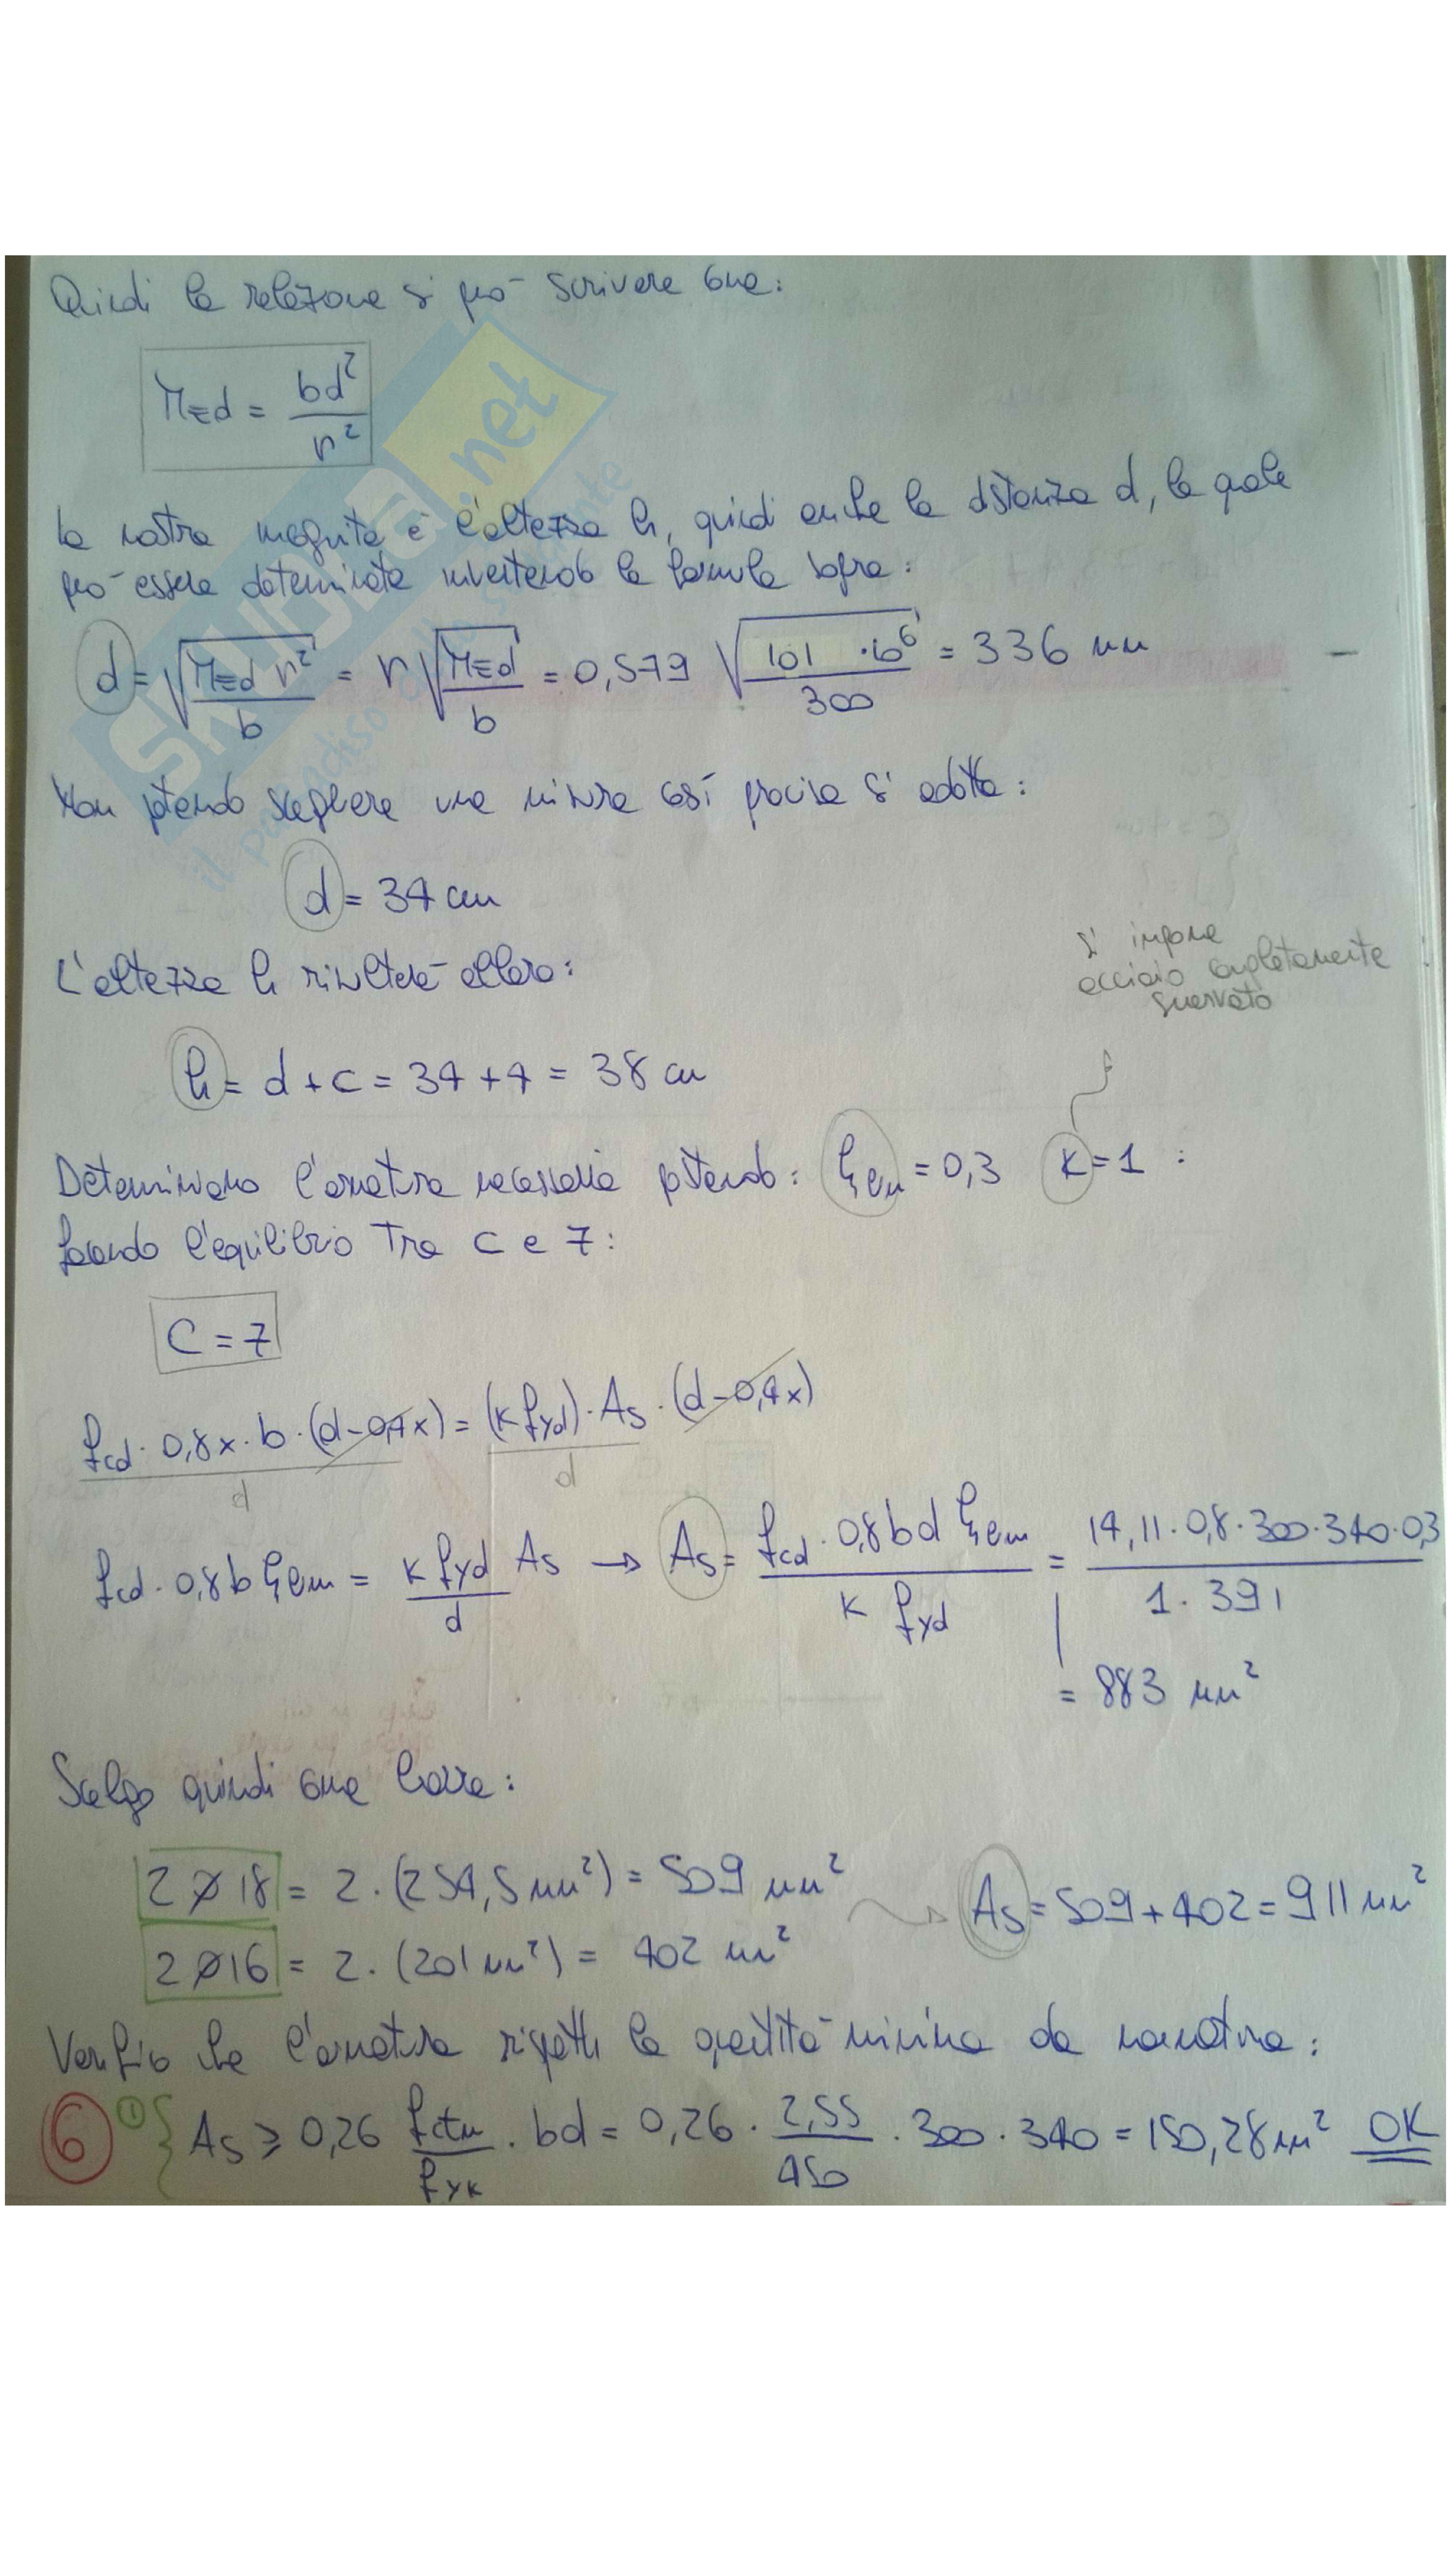 Quindi la relazione si può scrivere come:
M_Ed = bd² / r²
la nostra incognita è l'altezza h, quindi anche la distanza d, la quale
può essere determinata invertendo la formula sopra:
d = √(M_Ed r² / b) = r √(M_Ed / b) = 0,579 √(101 · 10⁶ / 300) = 336 mm
Non potendo scegliere una misura così precisa si adotta:
d = 34 cm
L'altezza h risulterà allora:
si impone
acciaio completamente
snervato
h = d + c = 34 + 4 = 38 cm
Determiniamo l'armatura necessaria ponendo: ξ_em = 0,3 K = 1 :
facendo l'equilibrio Tra C e T:
C = T
f_cd · 0,8x · b · (d - 0,4x) / d = (K f_yd) · A_s · (d - 0,4x) / d
f_cd · 0,8 b ξ_em = K f_yd / d A_s → A_s = f_cd · 0,8 b d ξ_em / K f_yd = 14,11 · 0,8 · 300 · 340 · 0,3 / 1 · 391
= 883 mm²
Scelgo quindi come barre:
2 ø 18 = 2 · (254,5 mm²) = 509 mm²
A_s = 509 + 402 = 911 mm²
2 ø 16 = 2 · (201 mm²) = 402 mm²
Verifico che l'armatura rispetti la quantità minima da normativa:
6 1 { A_s ≥ 0,26 f_ctm / f_yk · bd = 0,26 · 2,55 / 450 · 300 · 340 = 150,28 mm² OK
skuola.net
il paradiso dello studente